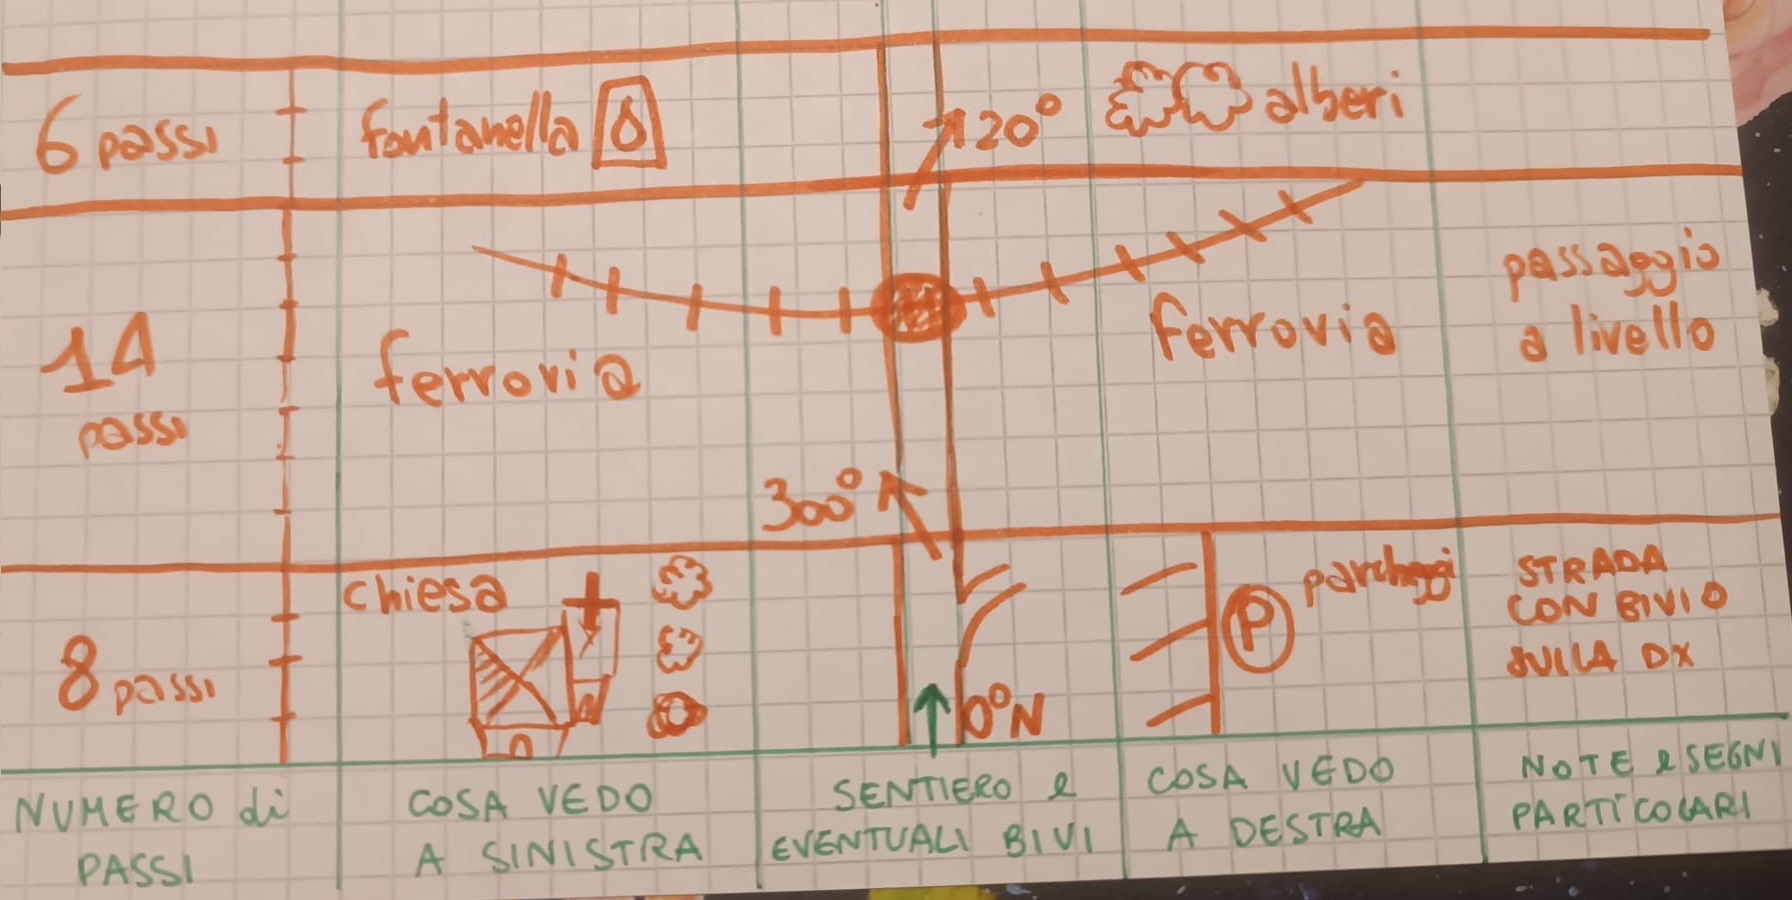 6 passi
fontanella
120°
alberi
14
passi
ferrovia
ferrovia
passaggio
a livello
300°
8 passi
chiesa
0°N
P
parcheggi
STRADA
CON BIVIO
SULLA DX
NUMERO di
PASSI
COSA VEDO
A SINISTRA
SENTIERO e
EVENTUALI BIVI
COSA VEDO
A DESTRA
NOTE e SEGNI
PARTICOLARI